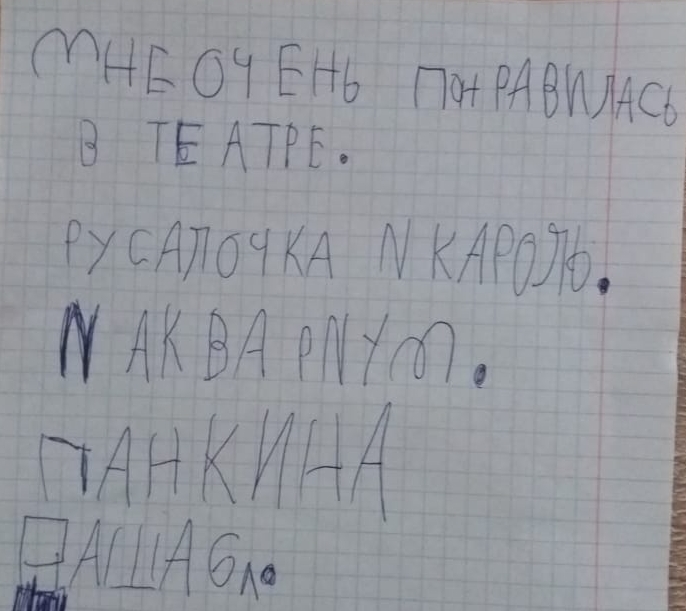 МНЕ ОЧЕНЬ ПОНРАВИЛАСЬ
В ТЕАТРЕ.
РУСАЛОЧКА И КАРОЛЬ.
И АКВАРИУМ.
ПАНКИНА
ДАША 6 л.